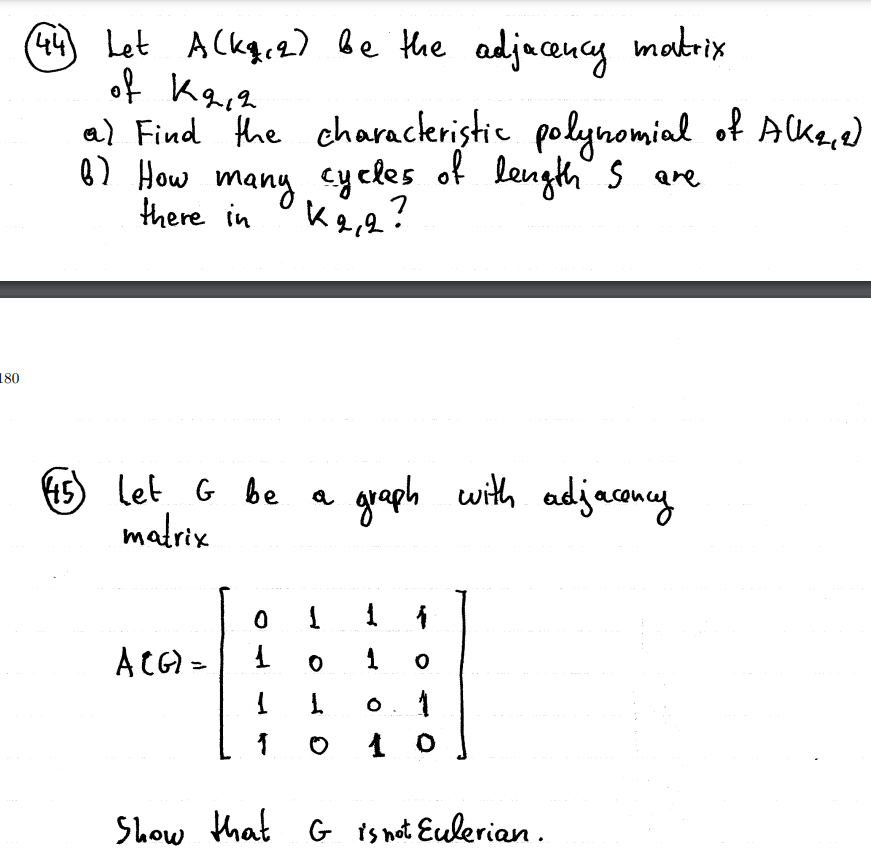 44) Let A(K2,2) be the adjacency matrix
of K2,2
a) Find the characteristic polynomial of A(K2,2)
b) How many cycles of length 5 are
there in K2,2?
180
45) Let G be a graph with adjacency
matrix
A(G) =
0 1 1 1
1 0 1 0
1 1 0 1
1 0 1 0
Show that G is not Eulerian.